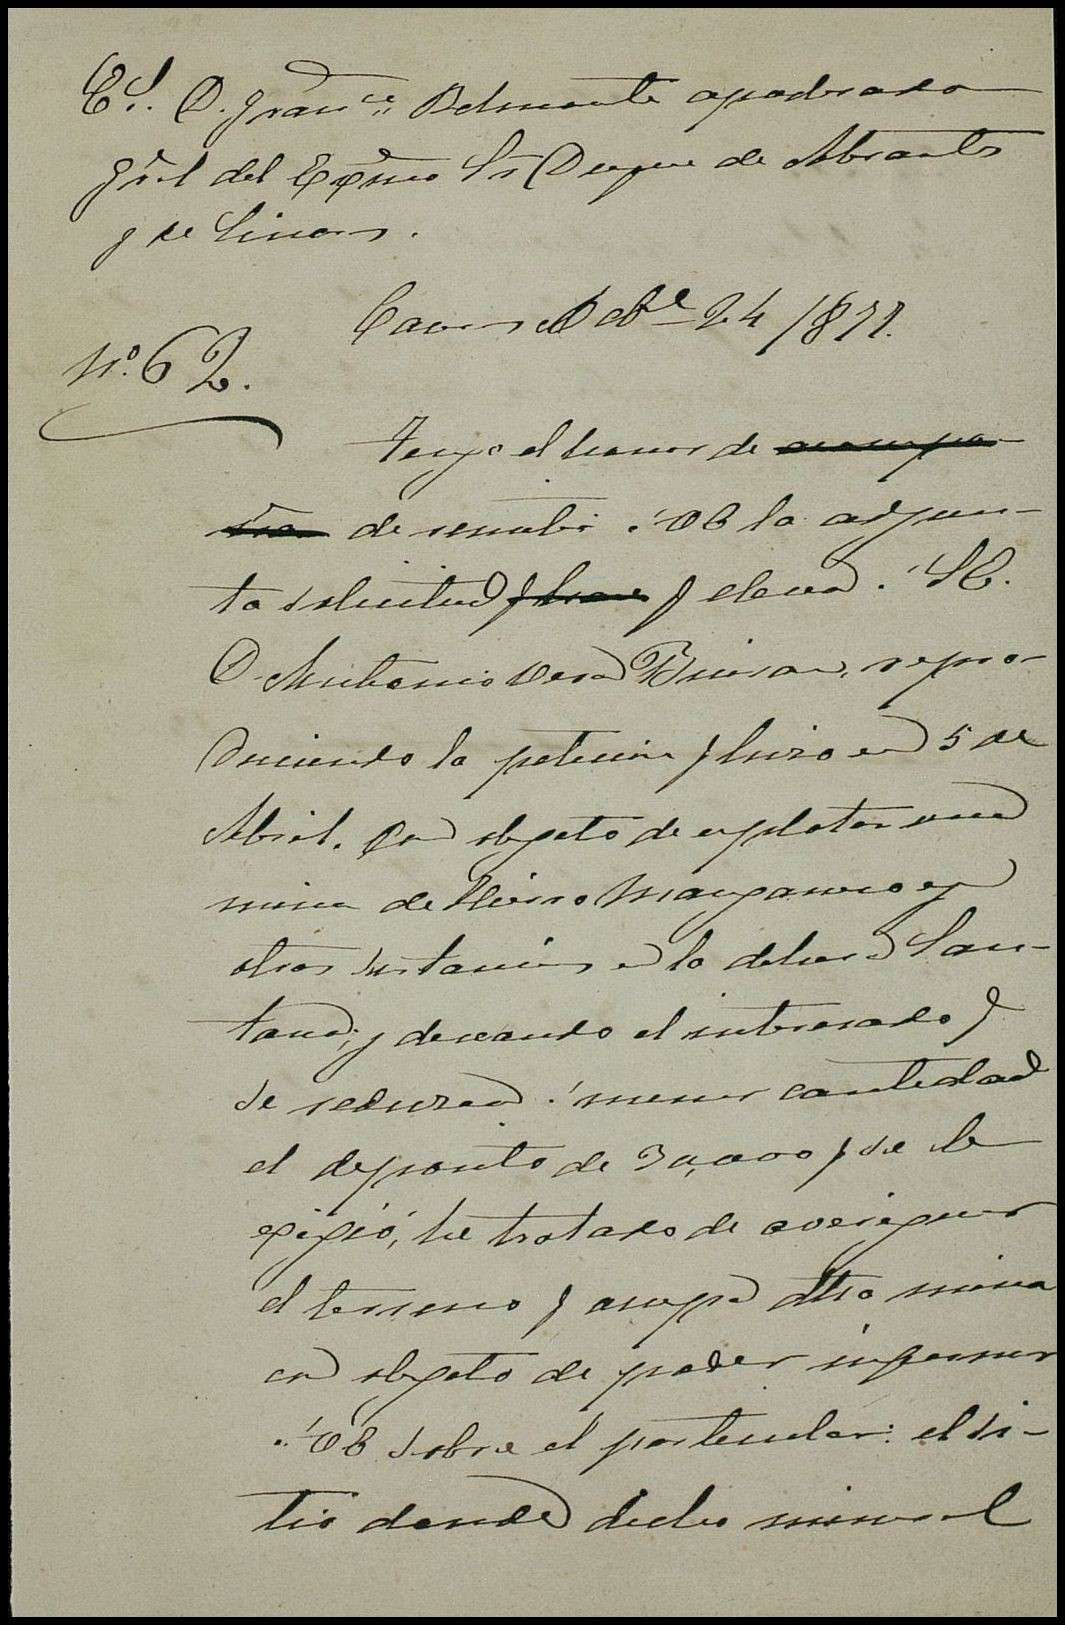 Sr. D. Franco. Belmonte apoderado
gral del Excmo Sr Duque de Abrantes
y de Linares.
Caceres Obre 24 / 1877.
No. 62.
Tengo el honor de acompa-
ñar de remitir á V la adjun-
ta solicitud q eleva á S.E.
D. Antonio repro-
duciendo la peticion q hizo en 5 de
Abril. con objeto de esplotar una
mina de Hierro Manganeso y
otras sustancias en la dehesa San-
tana; y deseando el interesado q
se reduzca á menor cantidad
el deposito de 30,000 q se le
exigió, he tratado de averiguar
el terreno q ocupa otra mina
con objeto de poder informar
á V sobre el particular: el si-
tio donde dicho mineral